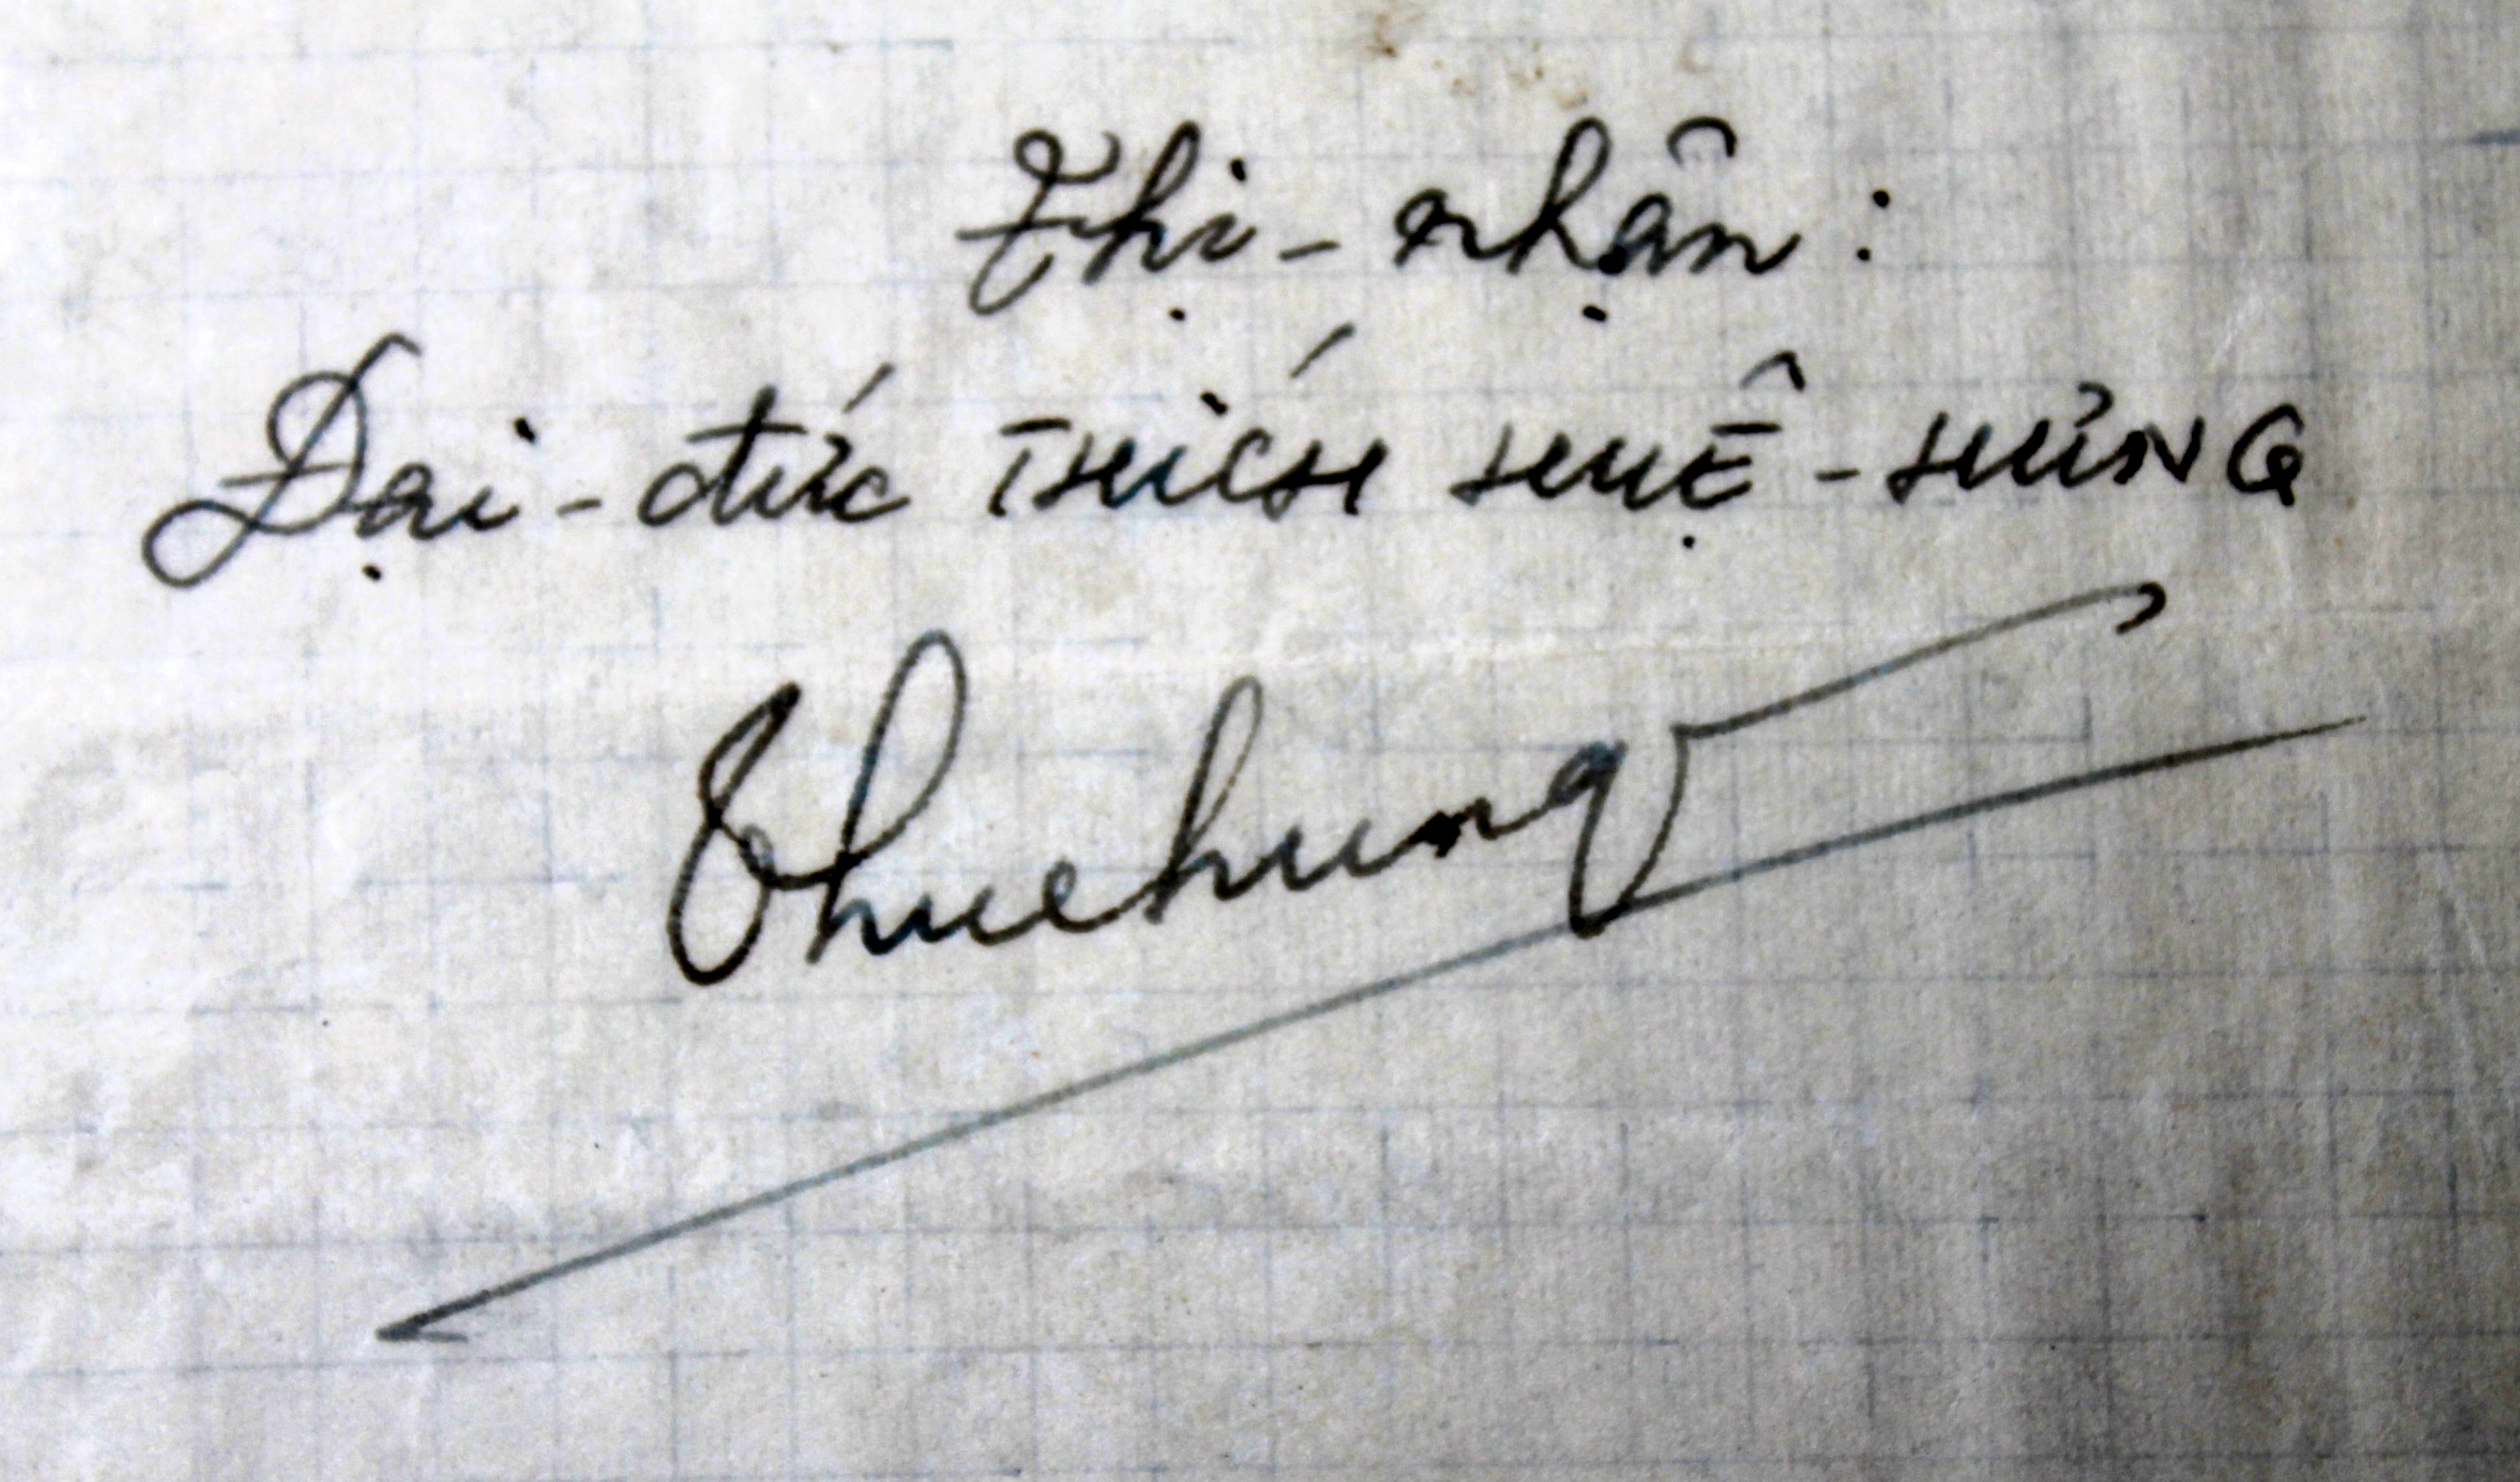 Thị-nhận:
Đại-đức THÍCH HUỆ-HƯNG
Thuehung